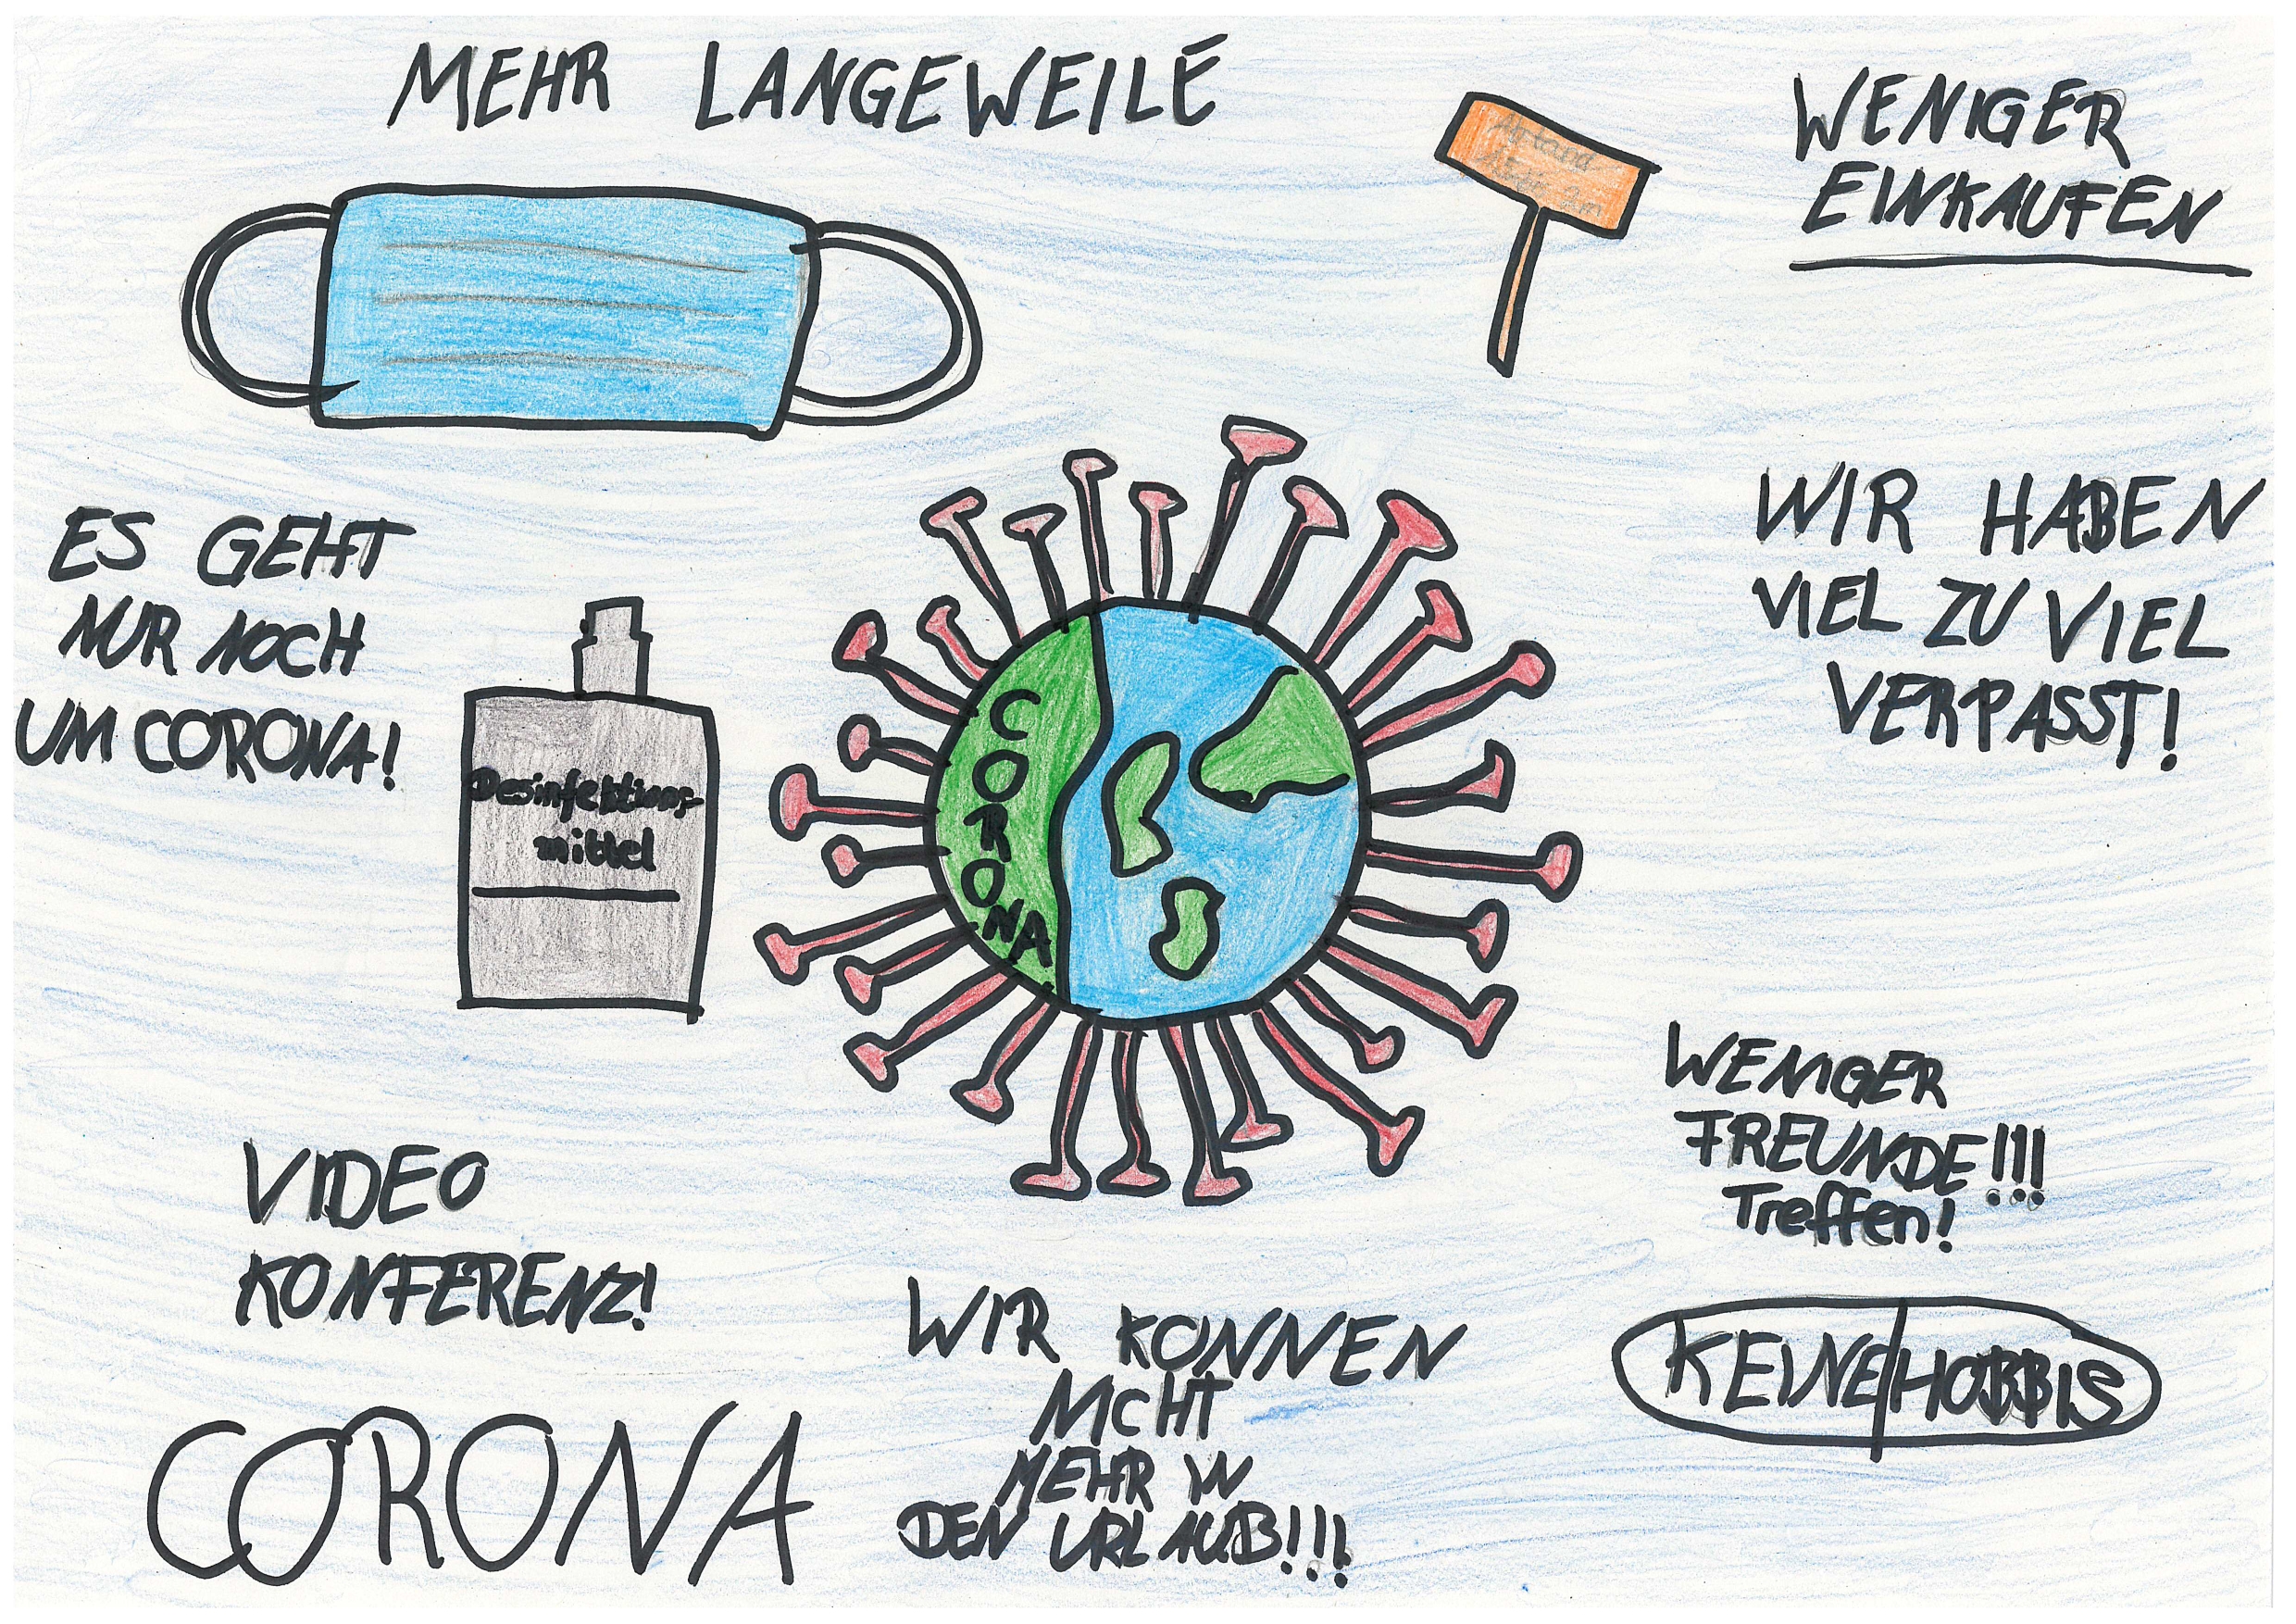 MEHR LANGEWEILE
WENIGER
EINKAUFEN
Abstand
1,5m 2m
ES GEHT
NUR NOCH
UM CORONA!
WIR HABEN
VIEL ZU VIEL
VERPASST!
Desinfektions-
mittel
CORONA
WENIGER
FREUNDE!!!
Treffen!
VIDEO
KONFERENZ!
WIR KONNEN
NICHT
MEHR IN
DEN URLAUB!!!
KEINE HOBBIS
CORONA